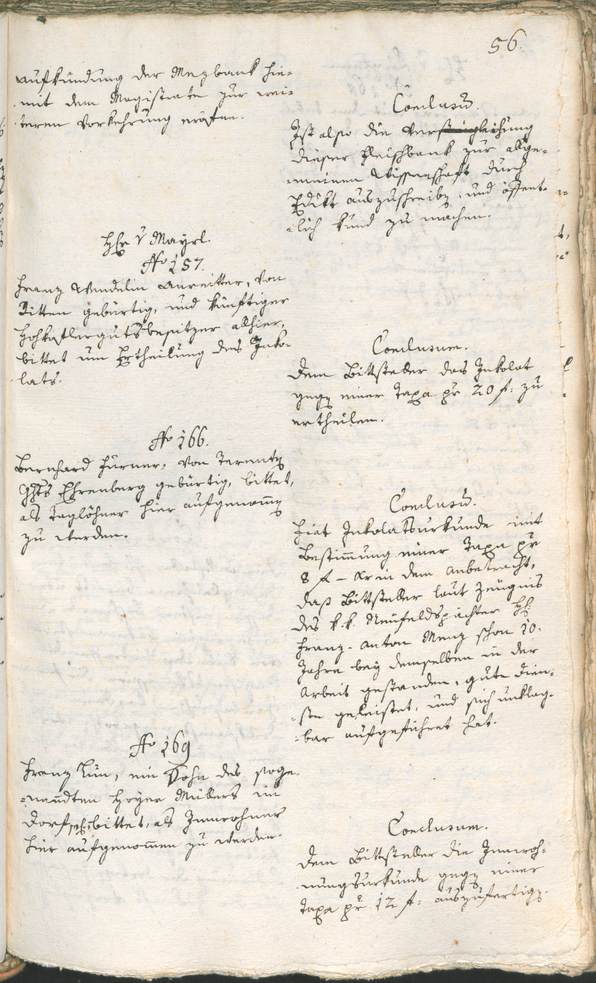 56.
aufkündung der Mezbank hie-
mit dem Magistrate zur wei-
teren Vorkehrung eröfen.
Conclusũ.
Ist also die Verstuichung
dieser Fleischbank zur allge-
meinen Wissenschaft durch
Edikt auszuschreibẽ, und öffent-
lich kund zu machen.
H. v Mayrl.
No 157.
Franz Wendelin Anreitter, von
Ritten gebürtig, und künftiger
Gutsbesitzer allhier,
bittet um Ertheilung des Inko-
lats.
Conclusum.
Dem Bittsteller das Inkolat
gegen einer Taxa pr 20 f: zu
ertheilen.
No 166.
Bernhard Fürner, von Terentẽ
Ghts Ehrenberg gebürtig, bittet,
als Taglöhner hier aufgenom̃en
zu werden.
Conclusũ.
Fiat Inkolatsurkunde mit
Bestim̃ung einer Taxa pr
8 f – Xr in dem anbetracht,
daß Bittsteller laut Zeugnis
des k. k. Neufeldspächter H.
Franz Anton Menz schon 10.
Jahre bey demselben in der
Arbeit gestanden, gute dien-
ste geleistet, und sich unklag-
bar aufgeführet hat.
No 169
Franz Lun, ein Sohn des soge-
nannten Müllers im
Dorf, bittet, als Innwohner
hier aufgenom̃en zu werden.
Conclusum.
Dem Bittsteller die Innwoh-
nungsurkunde gegen einer
Taxa pr 12 f: auszufertigẽ.